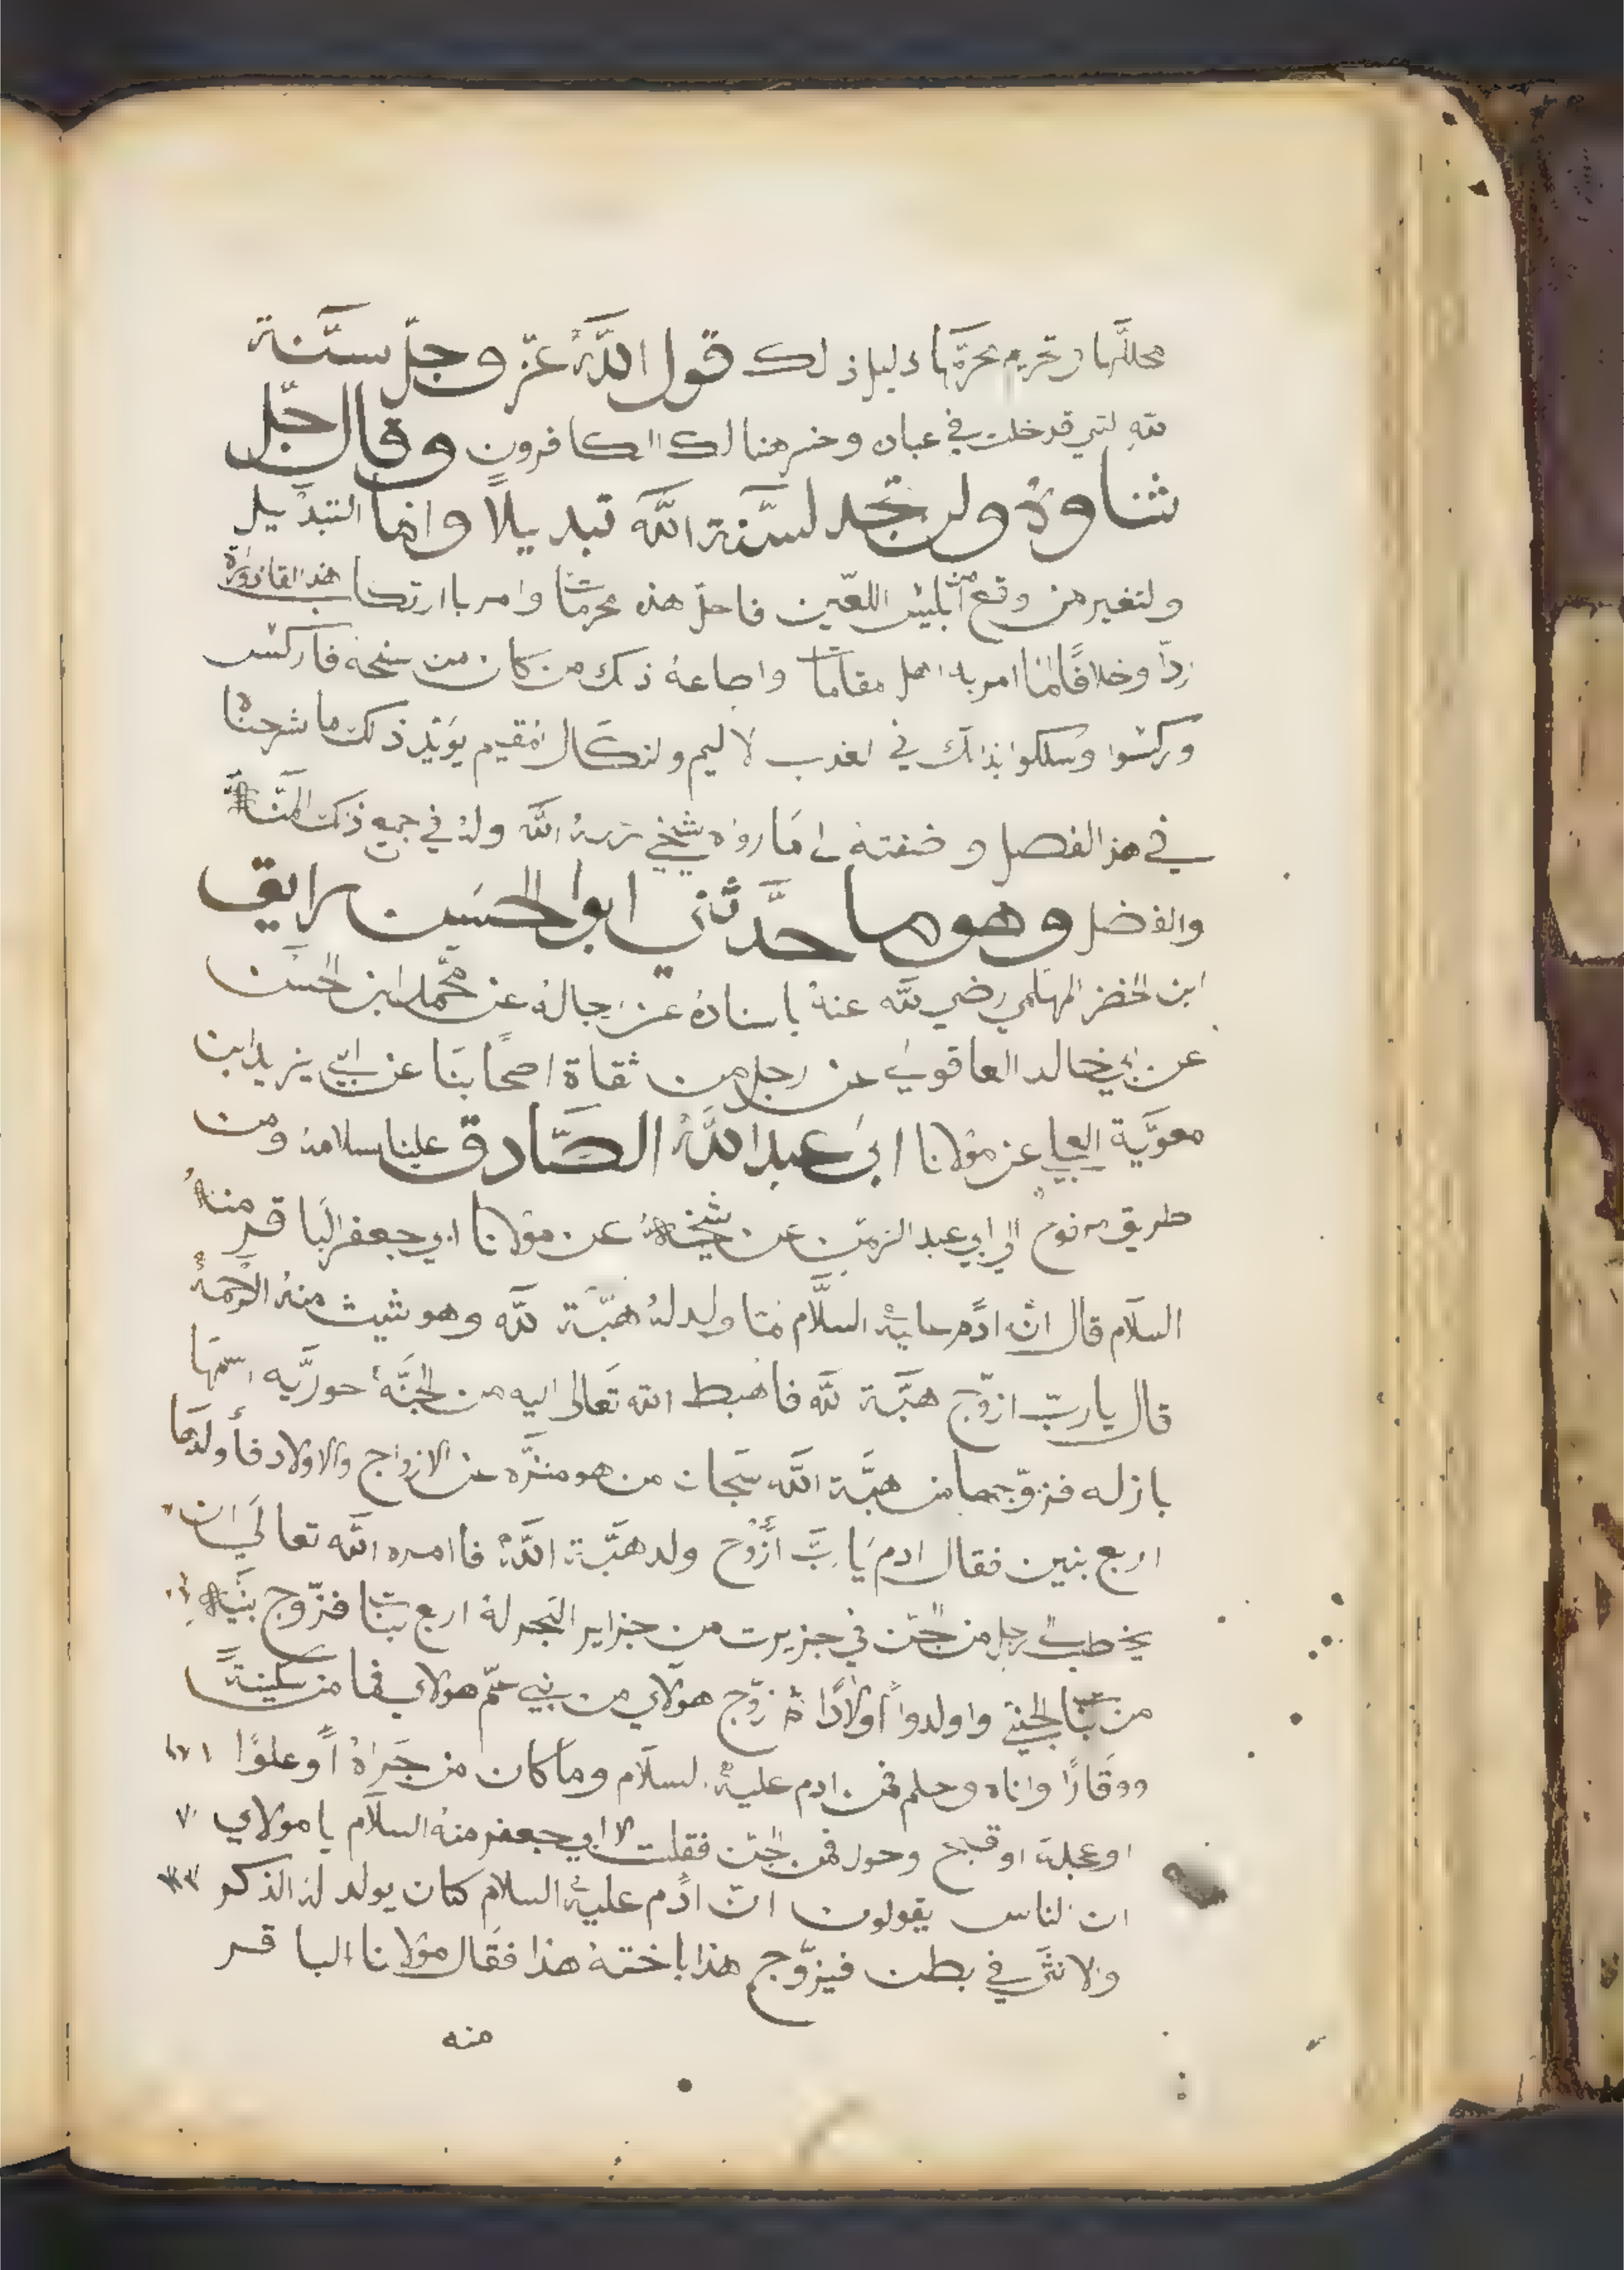 محللّها وتحريم محرّمها دليل ذلك قول اللّه عزّ وجلّ سنّة
للّه لتي قد خلت في عباده وخسر هنالك الكافرون وقال جلّ
ثناوهُ ولن تجد لسنّة اللّه تبديلاً وانما التبديل
ولتغير من وقع من ابليس اللعّين فاحلّ هذه محرمتا وامر باارتكاب هذه القاذورة
ردّاً وخلافًا لما امر به اهل مقاماتا واطاعهُ ذلك من كان من سنخه فاركس
وركسوا وسلكوا بذالك في لعذب لاليم ولنكال لمقيم يوَيّد ذلك ما شرحناه
في هذ الفصل و ما رواه شيخي نزههُ اللّه ولهُ في جميع ذلك المنّة
والفضل وهو ما حدَّثني ابو الحسَن رايق
ابن الخضر المهلمي رضي للّه عنهُ باسنادهُ عن رجالهُ عن محَّمد ابن الحسَن
عن ابي خالد العاقولي عن رجل من ثقاة اصحابنَا عن ابي يزيد ابن
معوَيَّة عن مَولانا ابي عبد اللَّهُ الصَّادق علينا سلامهُ ومن
طريق مرفوع الي ابي عبد الزمّن عن شيخهُ عن مولانا ابي جعفر البَاقر منهُ
السلَام قال انّ ادًم عليهُ السلَّام لمّا ولد لهُ هبَّة للّه وهو شيث منهُ الرَحمهُ
قال يا ربّ ازوّج هبَّة للّه فاهبط اللّه تعَالى اليه من الجنَّةُ حوريَّه اسمهَا
بازله فزوّجها من هبَّة اللّه سبحان من هو منزّه عن الازواج والاولاد فأولدهَا
اربع بنين فقال ادم يَا ربَّ أزوّج ولد هبَّة اللَّهُ فاامره اللّه تعالَي ان
يخطب الى رجل من الجنّ في جزيرت من جزاير البحر لهُ اربع بنات فزّوج بنَيه
من بنّات الجني واولدوا اولادًا ثمّ زوّج هولَاي من بَني عمّ هولاي فما من سكينةً
ووقَارًا واناه وحلم فمن ادم عليهُ السلَام وما كان من جَراهُ اًو علوًا
او عجلة او قبيح وحول فمن الجنّ فقلت لا ابي جعفر منهُ السلَام يا مولاي
ان لناس يقولون انّ ادًم عليهُ السلام كان يولد لهُ الذكر
والانثَى في بطن فيزوّج هذا باختهُ هذا فقَال مَولانا الباقر
منه